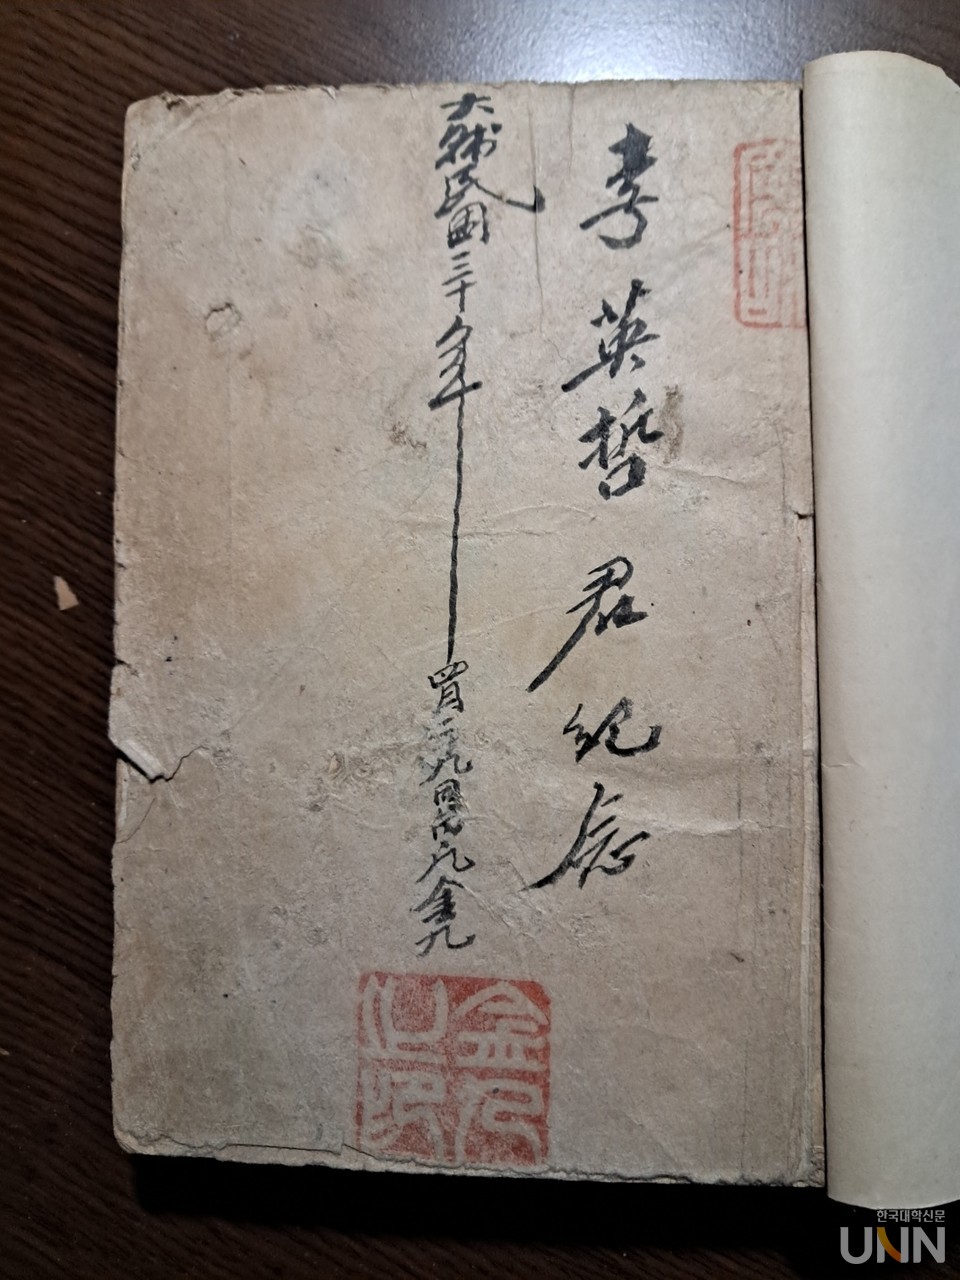 李英哲君紀念
大韓民國三十年
四月二九日
白凡金九
金九之印
한국대학신문
UNN